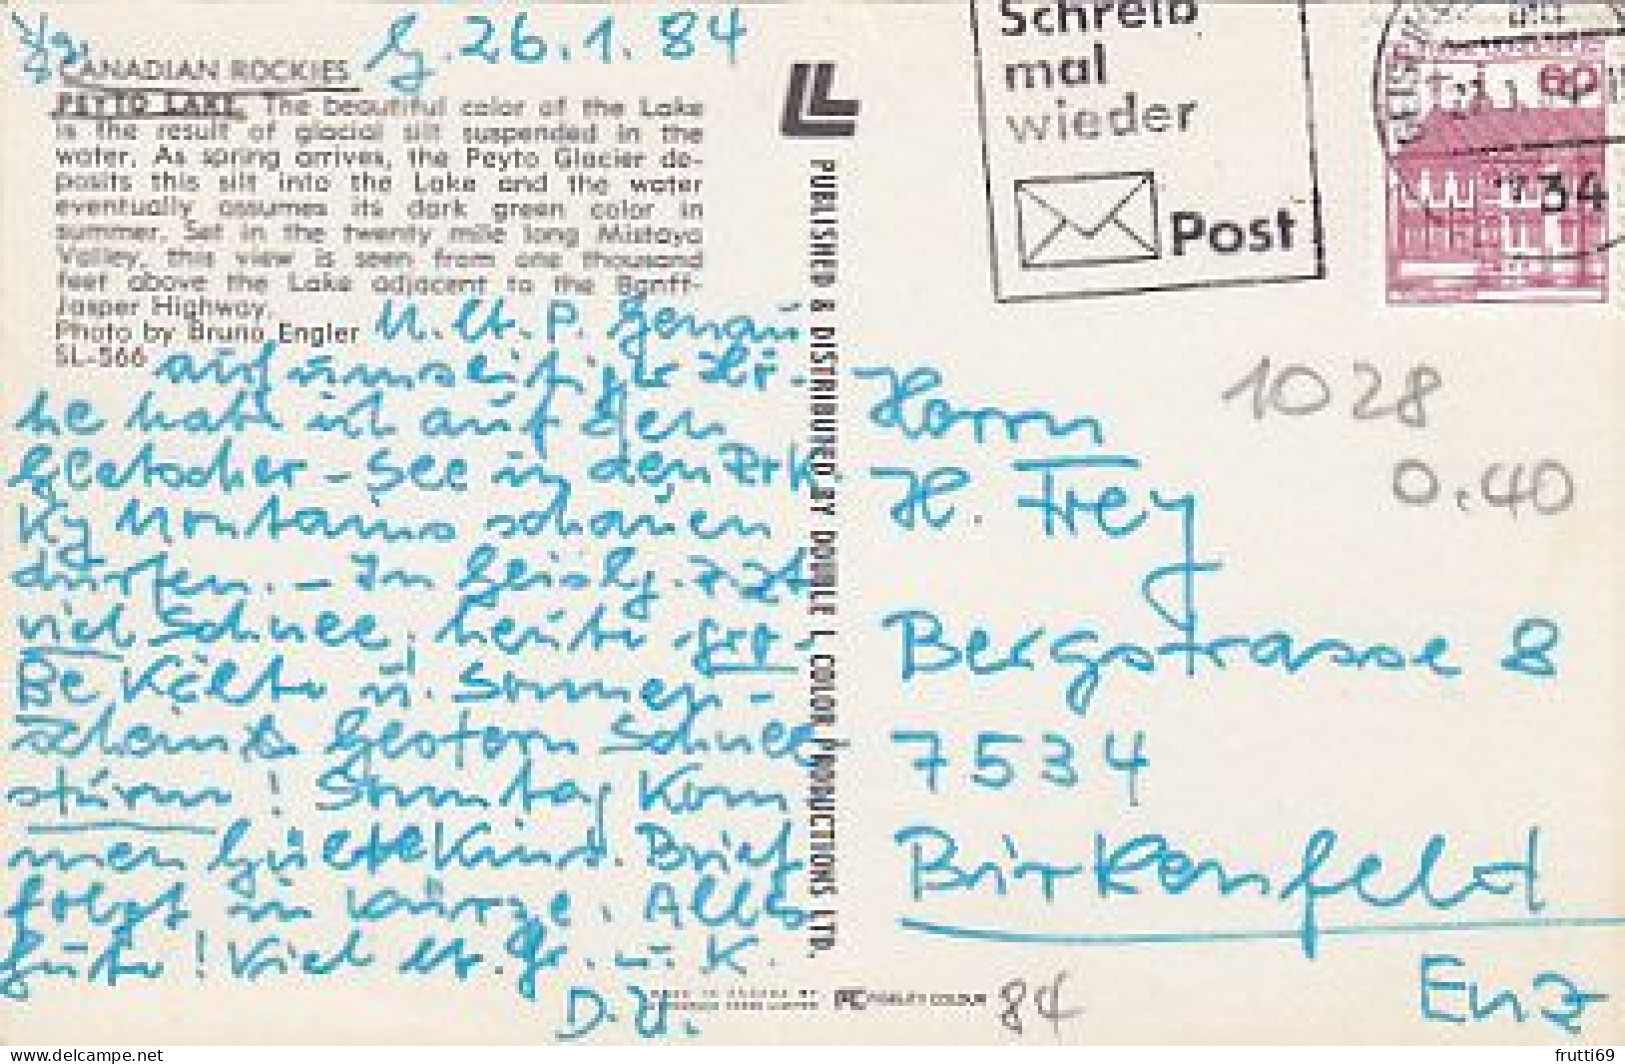 G. 26.1.84
CANADIAN ROCKIES
PEYTO LAKE. The beautiful color of the Lake
is the result of glacial silt suspended in the
water. As spring arrives, the Peyto Glacier de-
posits this silt into the Lake and the water
eventually assumes its dark green color in
summer. Set in the twenty mile long Mistaya
Valley, this view is seen from one thousand
feet above the Lake adjacent to the Banff-
Jasper Highway.
Photo by Bruno Engler
SL-566
M. lb. P. Genau
auf umseitiger Hö-
he habe ich auf den
Gletscher-See in den
ky Montains schauen
dürfen. - In Geislg. zzt
viel Schnee, heute gro-
ße Kälte u. Sonnen-
schein & Gestern Schnee
sturm! Sonntag kom
men Gäste Brief
folgt in Kürze. Alles
Gute! Viel lb. Gr. u. K.
D. U.
PUBLISHED & DISTRIBUTED BY DOUBLE L COLOR PRODUCTIONS LTD.
FIDELITY COLOUR
84
Schreib
mal
wieder
Post
60
734
1028
0.40
Herrn
H. Frey
Bergstrasse 8
7534
Birkenfeld
Enz
frutti69